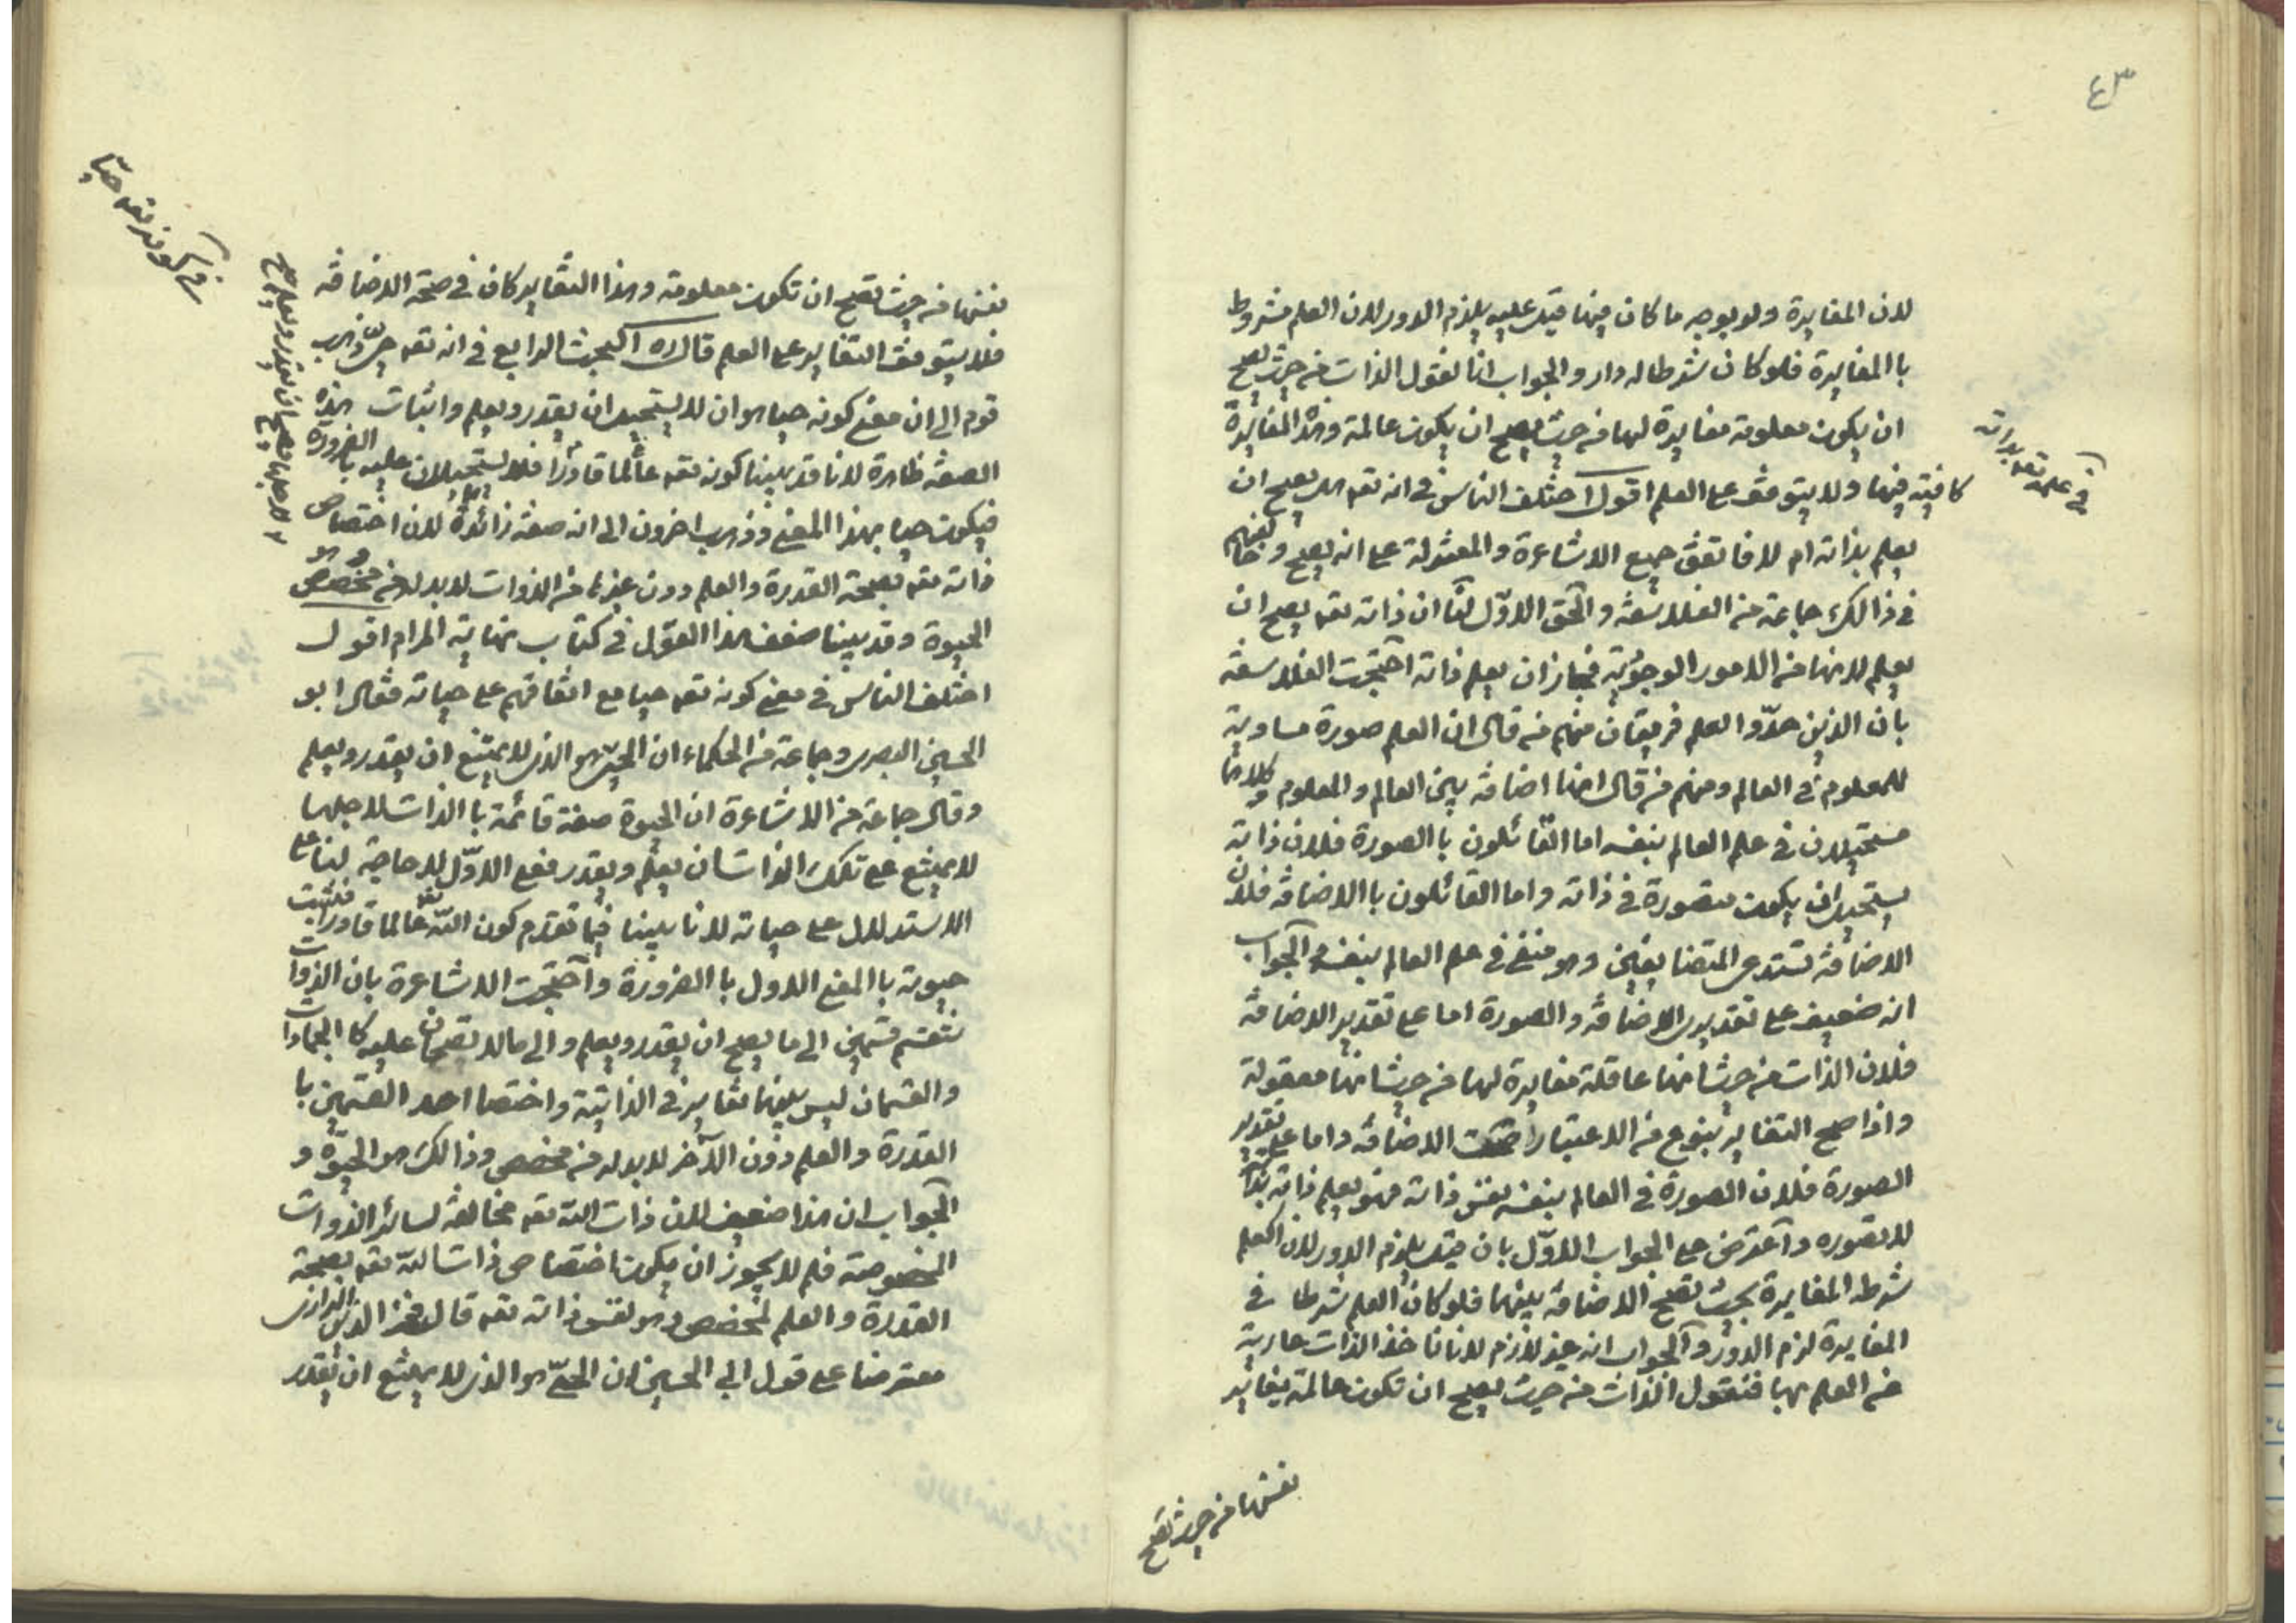 ٤٣
لان المغايرة ولو بوجه ما كان فيها قيل عليه يلزم الدور لان العلم مشروط
باالمغايرة فلو كان شرطا له دار والجواب انا نقول الذات من حيث يصح
ان يكون معلومة مغايرة لها من حيث يصح ان يكون عالمة وهذه المغايرة
كافية فيها ولا يتوقف على العلم اقول اختلف الناس في انه تعه هل يصح ان
في علمه تعه بذاته
يعلم بذاته ام لا فاتفق جميع الاشاعرة والمعتزلة على انه يصح وخالفهم
في ذالك جماعة من الفلاسفة والحق الاوّل لنا ان ذاته تعه يصح ان
يعلم لانها من الامور الوجوديّة فجاز ان يعلم ذاته احتجت الفلاسفة
بان الذين حدّوا العلم فريقان منهم من قال ان العلم صورة مساوية
للمعلوم في العالم ومنهم من قال انها اضافة بين العالم والمعلوم وكلاهما
مستحيلان في علم العالم بنفسه اما القائلون باالصورة فلان ذاته
يستحيل ان يكون متصورة في ذاته واما القائلون باالاضافة فلان
الاضافة تستدعى المتضايفين وهو منتفى في علم العالم بنفسه والجواب
انه ضعيف على تقديرى الاضافة والصورة اما على تقدير الاضافة
فلان الذات من حيث انها عاقلة مغايرة لها من حيث انها معقولة
واذا صح التغاير بنوع من الاعتبار صحت الاضافة واما على تقدير
الصورة فلان الصورة في العالم بنفسه نفس ذاته فهو يعلم ذاته بذاته
لا بصوره واعترض على الجواب الاوّل بان قيل يلزم الدور لان العلم
شرطه المغايرة بحيث تصح الاضافة بينهما فلو كان العلم شرطا في
المغايرة لزم الدور والجواب انه غير لازم لانا ناخذ الذات عارية
من العلم بها فنقول الذات من حيث يصح ان تكون عالمة يغاير
نفسها من حيث تصح
في كونه تعه حيّا
نفسها من حيث تصح ان تكون معلومة وهذا التغاير كاف في صحة الاضافة
فلا يتوقف التغاير على العلم قال ره البحث الرابع في انه تعه حىّ ذهب
قوم الى ان معنى كونه حيا هو ان لا يستحيل ان يقدر ويعلم واثبات هذه
الصفة ظاهرة لانا قد بينا كونه تعه عالما قادرا فلا يستحيلان عليه باالضرورة
فيكون حيا بهذا المعنى وذهب اخرون الى انه صفة زائدة لان اختصاص
ذاته تعه بصحة القدرة والعلم دون غيرها من الذوات لا بد له من مخصص
الحيوة وقد بينا ضعف هذا القول في كتاب نهاية المرام اقول
اختلف الناس في معنى كونه تعه حيا مع اتفاقهم على حياته فقال ابو
الحسين البصرى وجماعة من الحكماء ان الحىّ هو الذى لا يمتنع ان يقدر ويعلم
وقال جماعة من الاشاعرة ان الحيوة صفة قائمة باالذات لاجلها
لا يمتنع على تلك الذات ان يعلم ويقدر فعلى الاوّل لا حاجة لنا على
الاستدلال على حياته لانا بينا فيما تقدم كون اللّه تعه عالما قادرا فثبت
حيوته باالمعنى الاول باالضرورة واحتجت الاشاعرة بان الذوات
تنقسم قسمين الى ما يصح ان يقدر ويعلم والى ما لا يصحان عليه كا الجمادات
والقسمان ليس بينهما تغاير في الذاتية واختصا احد القسمين با
القدرة والعلم دون الآخر لا بد له من مخصص وذالك هو الحيوة و
الجواب ان هذا ضعيف لان ذات اللّه تعه مخالفة لسائر الذوات
المخصوصة فلم لا يجوز ان يكون اختصاص ذات اللّه تعه بصحة
القدرة والعلم لمخصص وهو نفس ذاته تعه قال فخر الدين الرازى
معترضا على قول ابي الحسين ان الحىّ هو الذى لا يمتنع ان يقدر